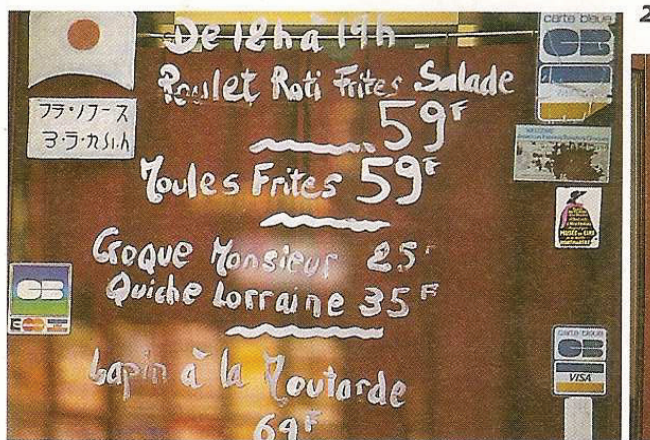 De 12h à 19h
Poulet Roti Frites Salade
59F
Moules Frites 59F
Croque Monsieur 25F
Quiche Lorraine 35F
Lapin à la Moutarde
69F
carte bleue
CB
WELCOME
CB
carte bleue
CB
VISA
2